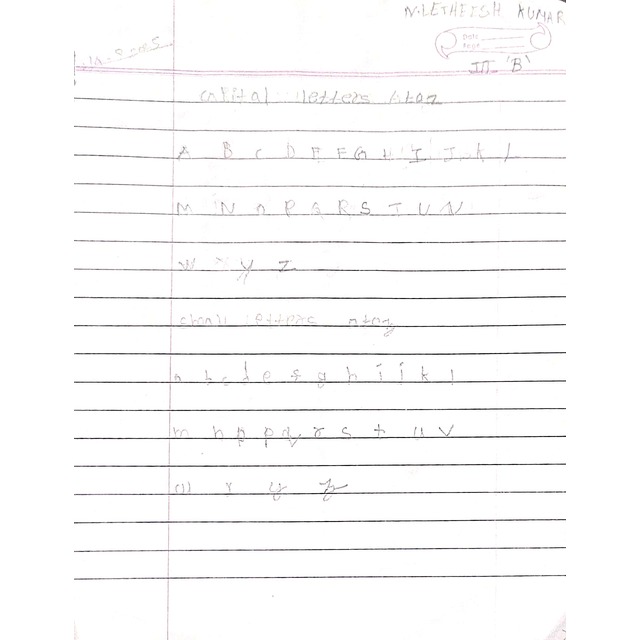 N.LETHEISH KUMAR
Date
Page
III 'B'
capital letters A to z
A B C D E F G H I J K l
M N n P Q R S T U N
w x y z
small letters a to z
a b c d e f g h i j k l
m n p p q r s t u v
w x y z